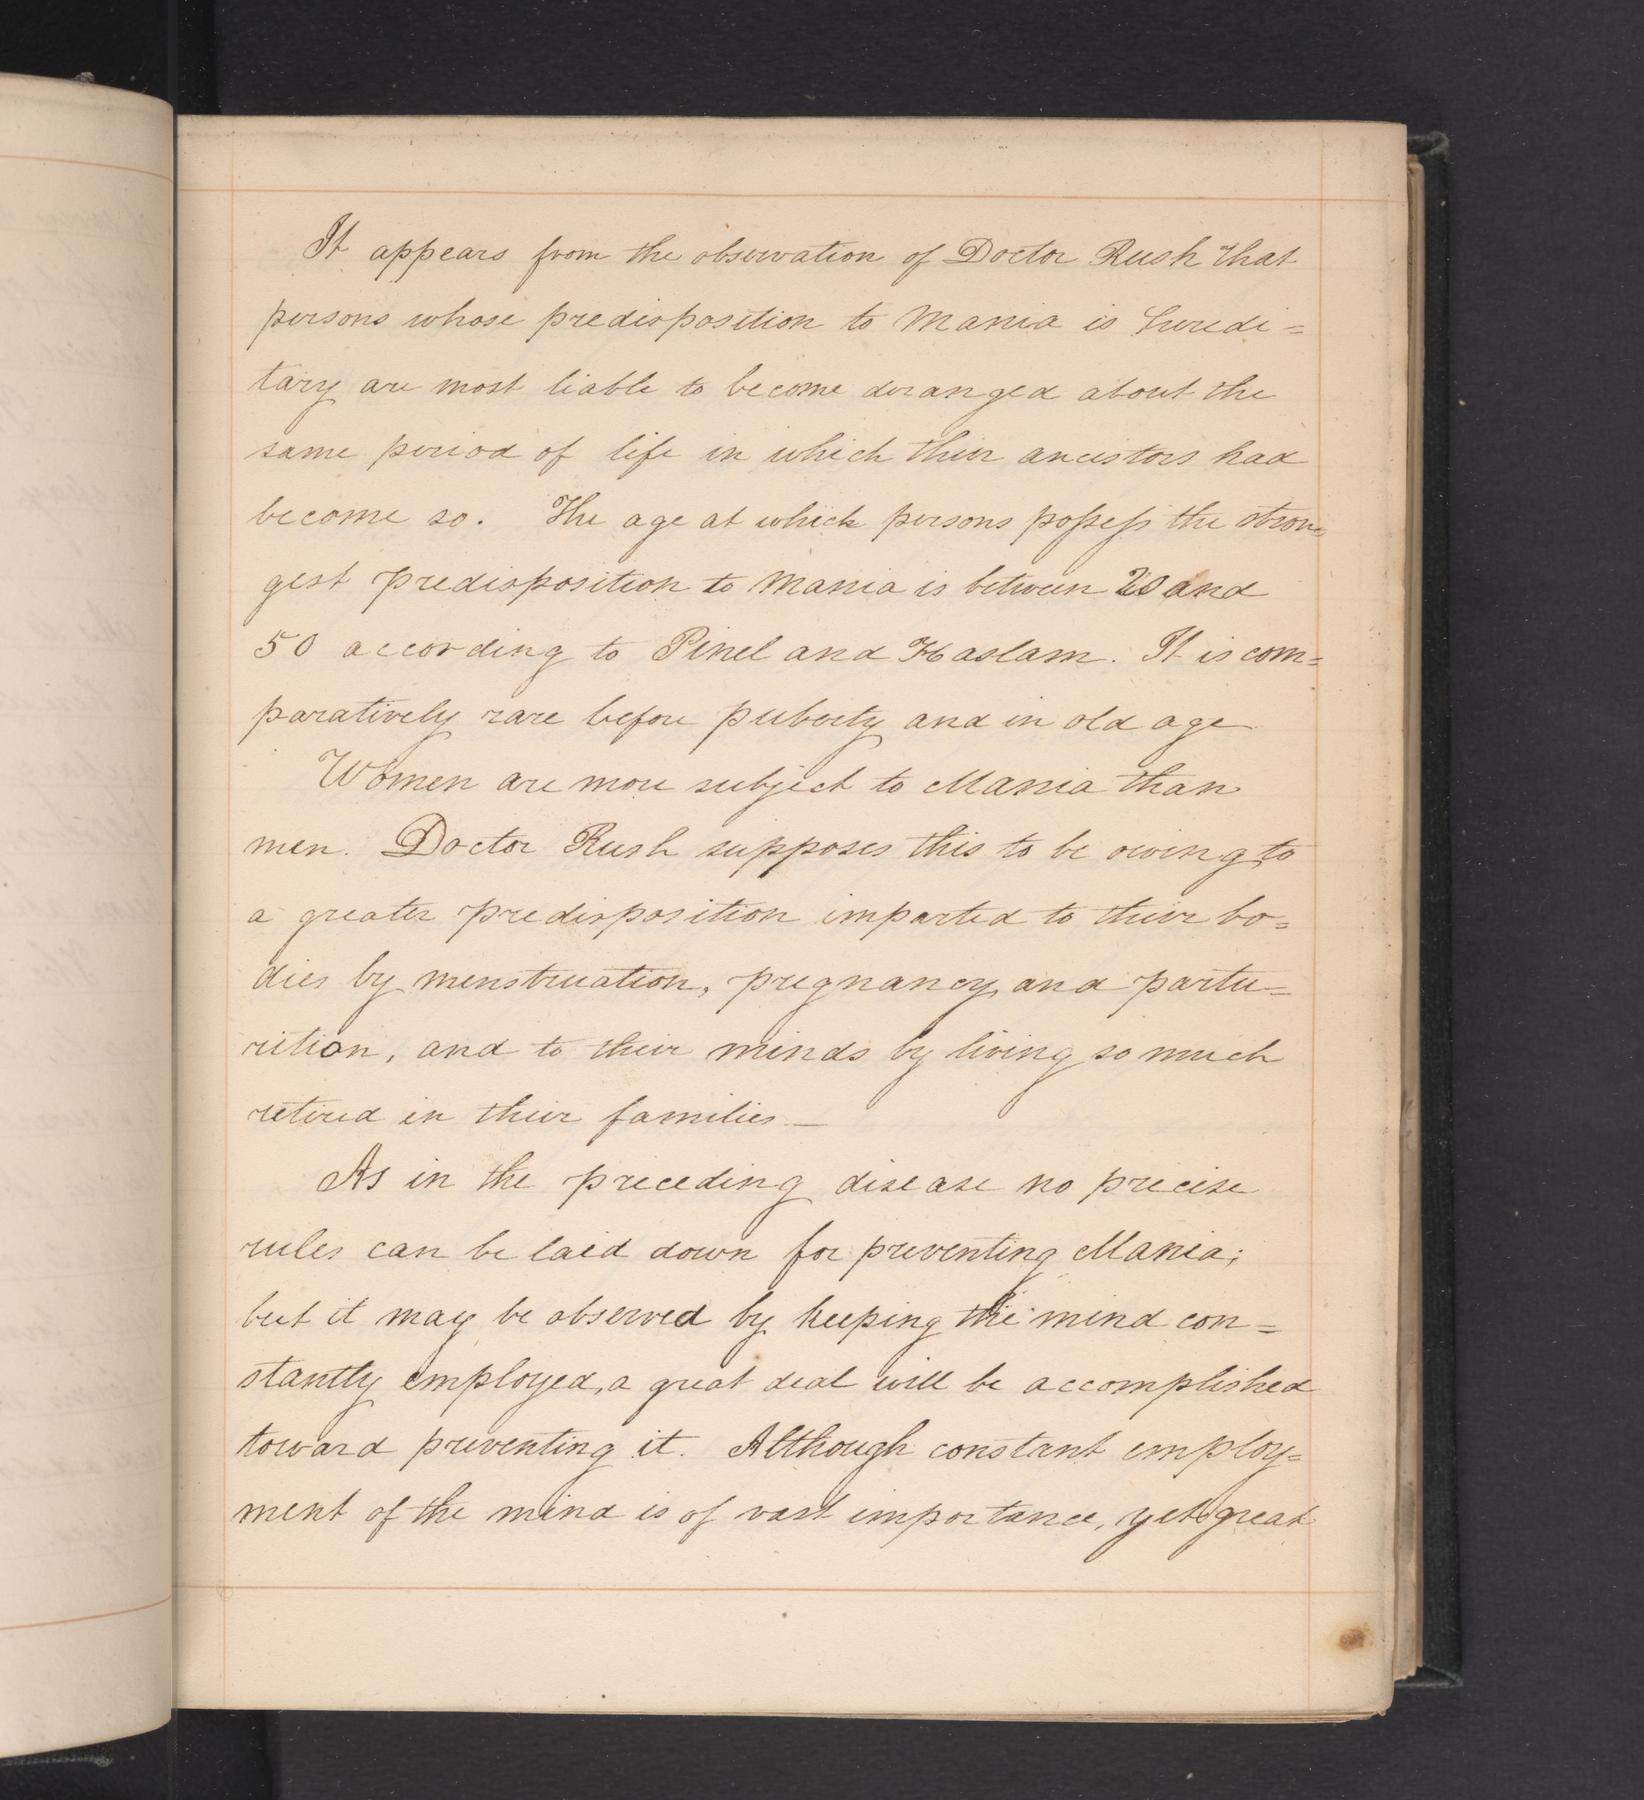 It appears from the observation of Doctor Rush that
persons whose predisposition to Mania is heredi=
tary are most liable to become deranged about the
same period of life in which their ancestors had
become so. The age at which persons possess the stron=
gest predisposition to Mania is between 20 and
50 according to Pinel and Haslam. It is com=
paratively rare before puberty and in old age
Women are more subject to Mania than
men. Doctor Rush supposes this to be owing to
a greater predisposition imparted to their bo=
dies by menstruation, pregnancy, and partu=
rition, and to their minds by living so much
retired in their families.—
As in the preceding disease no precise
rules can be laid down for preventing Mania;
but it may be observed by keeping the mind con=
stantly employed, a great deal will be accomplished
toward preventing it. Although constant employ=
ment of the mind is of vast importance, yet great